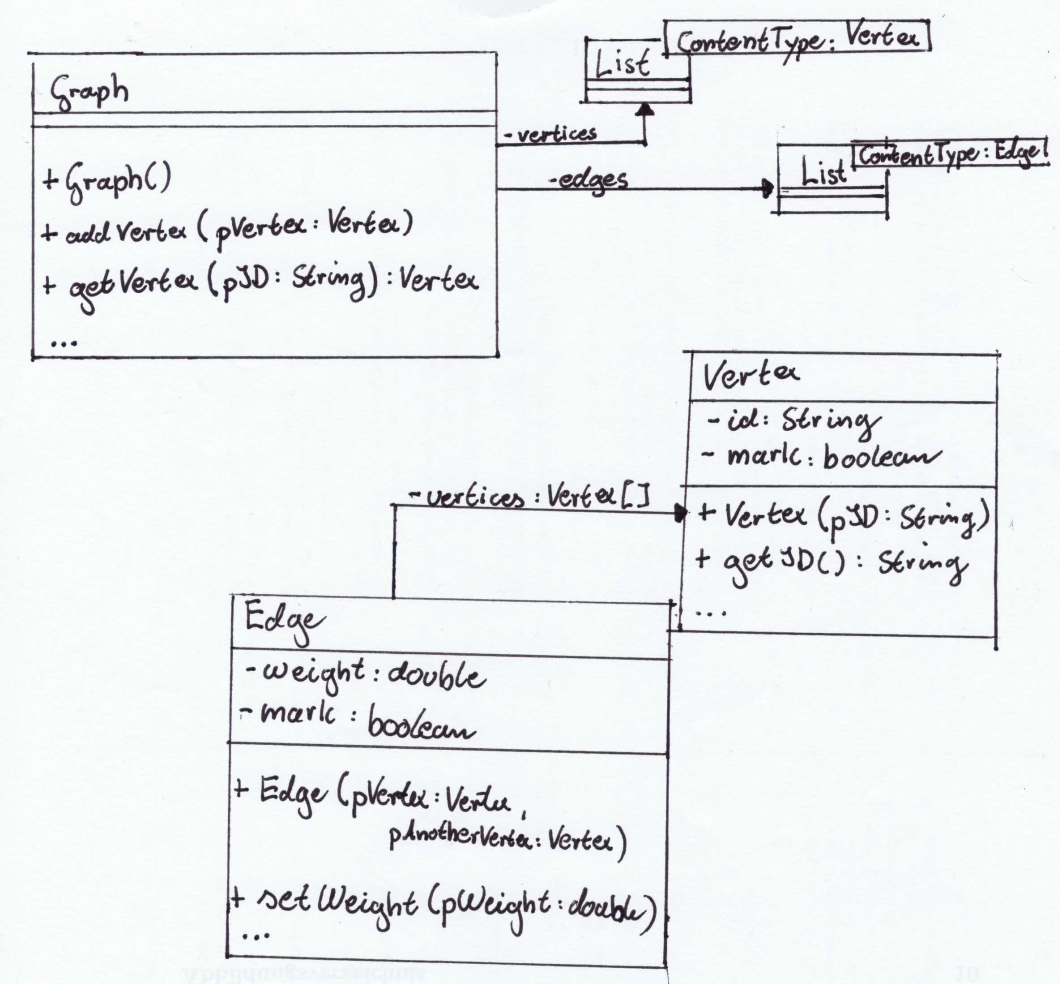 Graph
+ Graph()
+ addVertex (pVertex: Vertex)
+ getVertex (pID: String): Vertex
...
- vertices
List
ContentType: Vertex
- edges
List
ContentType: Edge
Vertex
- id: String
- mark: boolean
+ Vertex (pID: String)
+ getID(): String
...
- vertices: Vertex[]
Edge
- weight: double
- mark: boolean
+ Edge (pVertex: Vertex,
pAnotherVertex: Vertex)
+ setWeight (pWeight: double)
...
Abbildungsverzeichnis
10